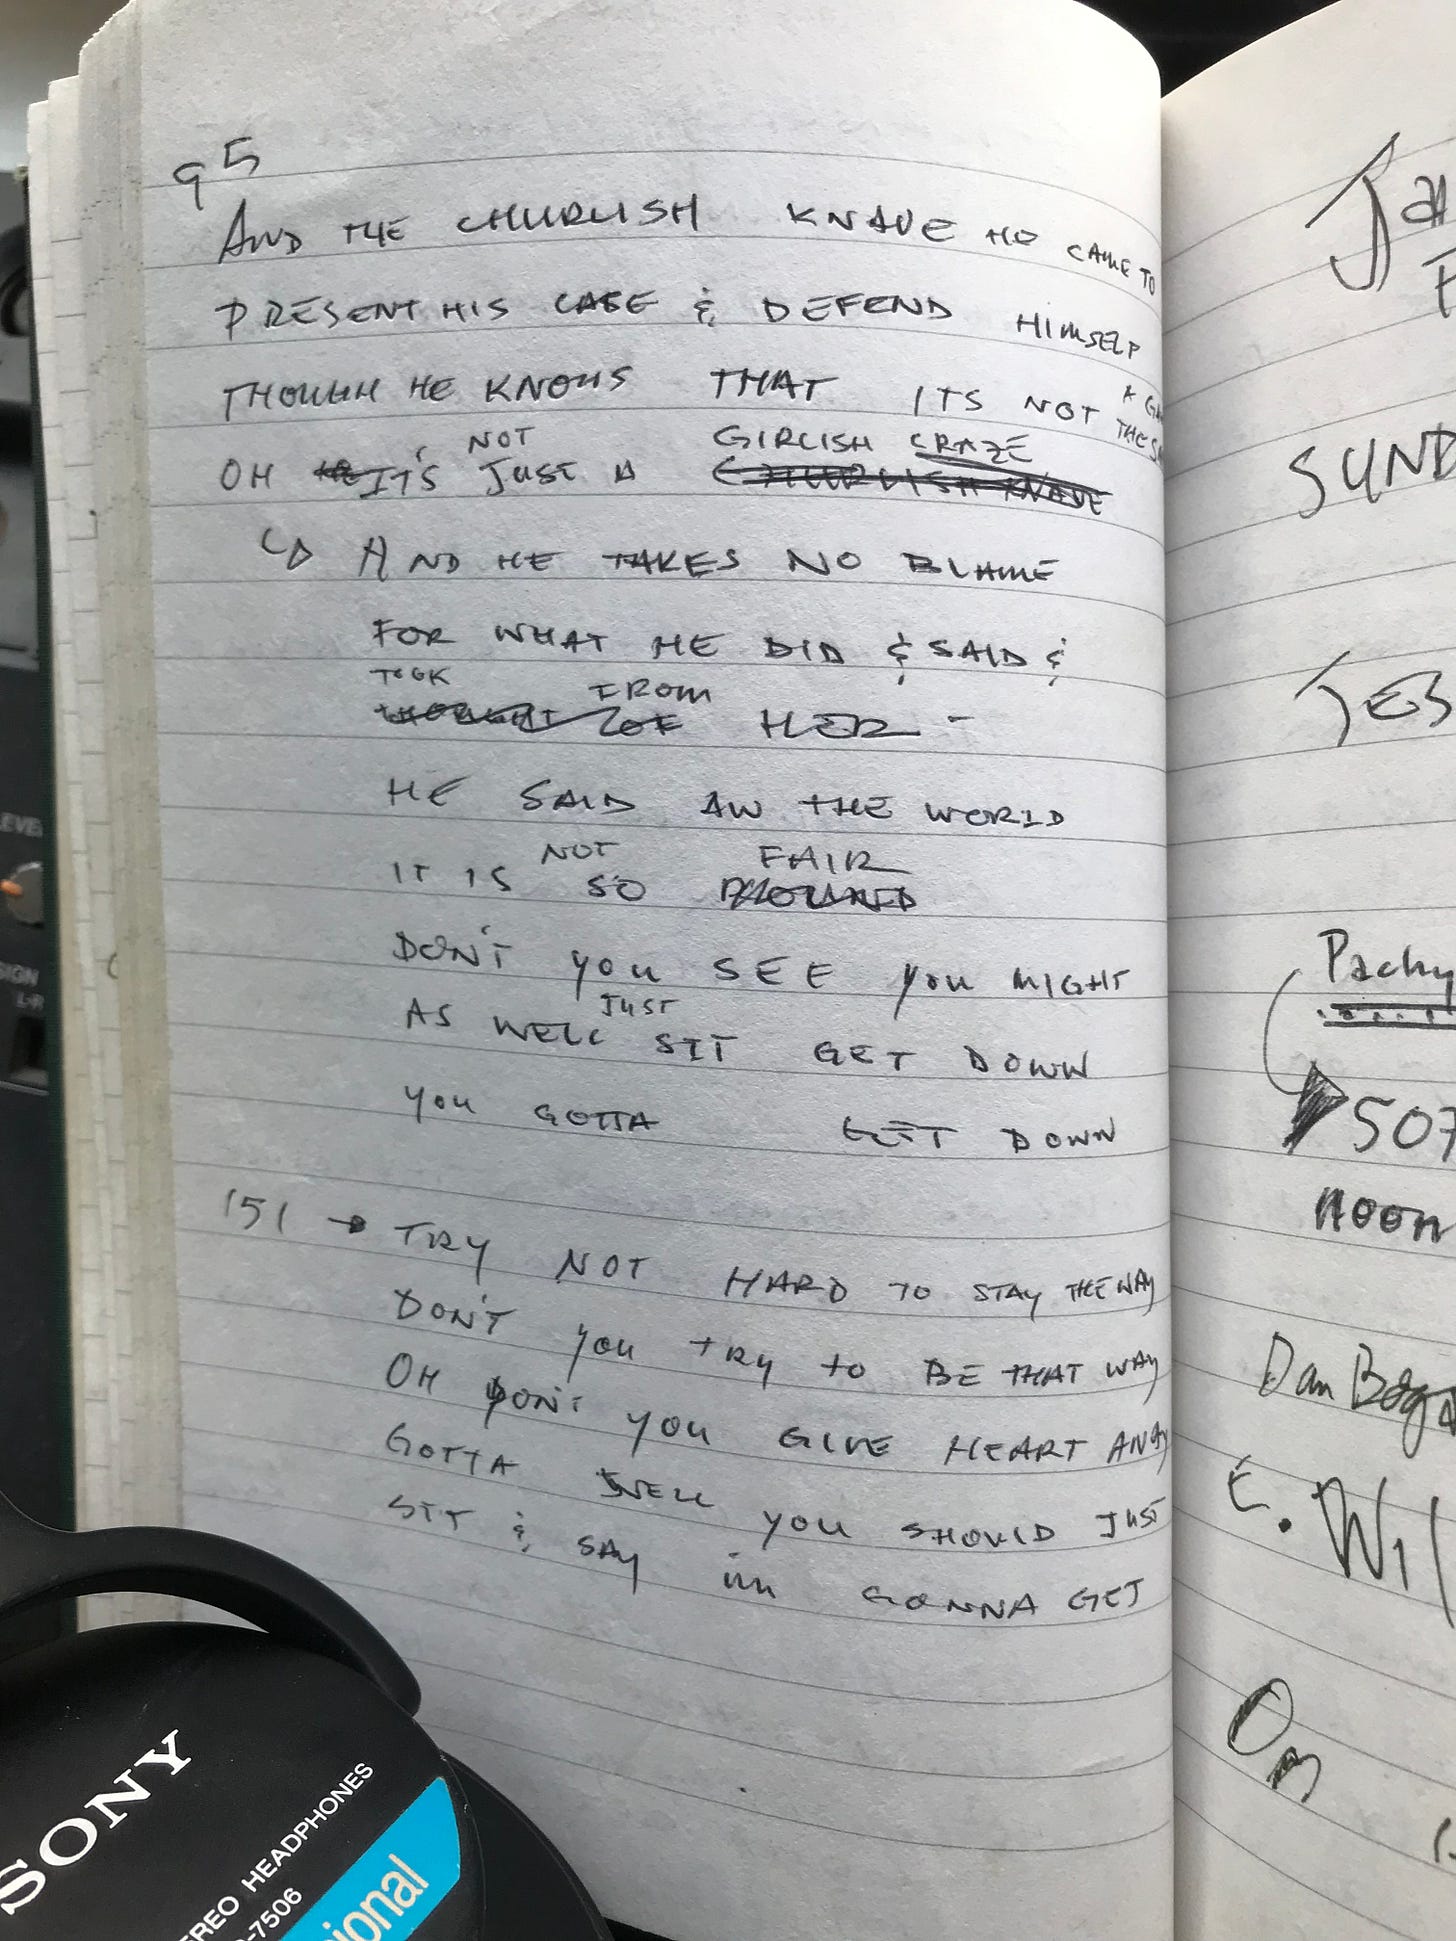 95
AND THE CHURLISH KNAVE HE CAME TO
PRESENT HIS CASE & DEFEND HIMSELF
THOUGH HE KNOWS THAT ITS NOT THE
A
NOT GIRLISH CRAZE
OH IT'S JUST A CHURLISH KNAVE
AND HE TAKES NO BLAME
FOR WHAT HE DID & SAID &
TOOK FROM
THOUGHT OF HER -
HE SAID AW THE WORLD
NOT FAIR
IT IS SO
DON'T YOU SEE YOU MIGHT
JUST
AS WELL SIT GET DOWN
YOU GOTTA GET DOWN
151 → TRY NOT HARD TO STAY THE WAY
DON'T YOU TRY TO BE THAT WAY
OH DON'T YOU GIVE HEART AWAY
GOTTA WELL YOU SHOULD JUST
SIT & SAY im GONNA GET
SUND
Pachy
507
NOON
Dan
E. Wil
Om
LEVEL
SIGN
L-R
SONY
STEREO HEADPHONES
-7506